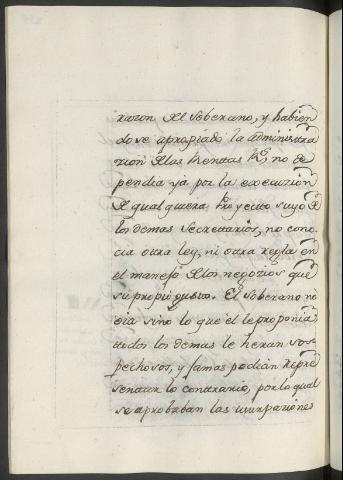 razon del Soberano, y habien
dose apropiado la administra
zion de las Rentas Rs, no de
pendia ya por la execuzion
de qualquiera Proyecto suyo de
los demas Secretarios, no cono
cia otra ley, ni otra regla en
el manejo de los negozios que
su propio gusto. El Soberano no
oia sino lo que el le proponia,
todos los demas le heran sos
pechosos, y jamas podian repre
sentar lo contrario, por lo qual
se aprobaban las usurpaziones